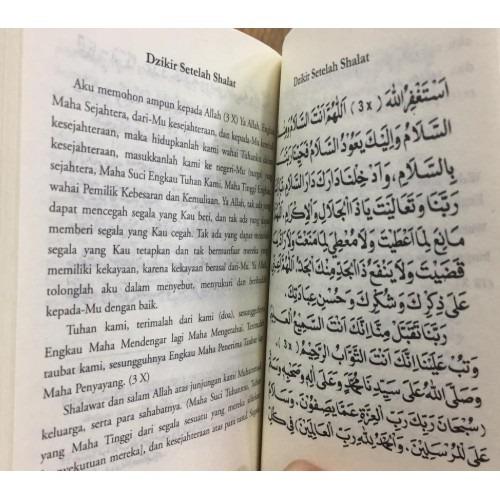 Dzikir Setelah Shalat
Aku memohon ampun kepada Allah (3 X) Ya Allah, Engkau
Maha Sejahtera, dari-Mu kesejahteraan, dan kepada-Mu kembali
kesejahteraan, maka hidupkanlah kami wahai Tuhanku dengan
kesejahteraan, masukkanlah kami ke negeri-Mu (surga) yang
sejahtera, Maha Suci Engkau Tuhan Kami, Maha Tinggi Engkau
wahai Pemilik Kebesaran dan Kemuliaan. Ya Allah, tak ada yang
dapat mencegah segala yang Kau beri, dan tak ada yang dapat
memberi segala yang Kau cegah. Tak ada yang dapat menolak
segala yang Kau tetapkan dan tak bermanfaat mereka yang
memiliki kekayaan, karena kekayaan berasal dari-Mu. Ya Allah,
tolonglah aku dalam menyebut, mensyukuri dan beribadah
kepada-Mu dengan baik.
Tuhan kami, terimalah dari kami (doa), sesungguhnya
Engkau Maha Mendengar lagi Maha Mengetahui. Terimalah
taubat kami, sesungguhnya Engkau Maha Penerima Taubat lagi
Maha Penyayang. (3 X)
Shalawat dan salam Allah atas junjungan kami Muhammad,
keluarga, serta para sahabatnya. (Maha Suci Tuhanmu, Tuhan
Yang Maha Tinggi dari segala sesuatu yang mereka sifatkan
dan kesejahteraan atas para rasul. Segala
Dzikir Setelah Shalat
اَسْتَغْفِرُ اللهَ (3 x) اَللّٰهُمَّ اَنْتَ السَّلَامُ وَمِنْكَ
السَّلَامُ وَاِلَيْكَ يَعُوْدُ السَّلَامُ فَحَيِّنَا رَبَّنَا
بِالسَّلَامِ، وَاَدْخِلْنَا دَارَكَ دَارَ السَّلَامِ تَبَارَكْتَ
رَبَّنَا وَتَعَالَيْتَ يَاذَا الْجَلَالِ وَالْاِكْرَامِ اَللّٰهُمَّ لَا
مَانِعَ لِمَا اَعْطَيْتَ وَلَا مُعْطِيَ لِمَا مَنَعْتَ وَلَا رَادَّ لِمَا
قَضَيْتَ وَلَا يَنْفَعُ ذَا الْجَدِّ مِنْكَ الْجَدُّ اَللّٰهُمَّ اَعِنِّيْ
عَلَى ذِكْرِكَ وَشُكْرِكَ وَحُسْنِ عِبَادَتِكَ
رَبَّنَا تَقَبَّلْ مِنَّا اِنَّكَ اَنْتَ السَّمِيْعُ الْعَلِيْمُ
وَتُبْ عَلَيْنَا اِنَّكَ اَنْتَ التَّوَّابُ الرَّحِيْمُ (3 x)
وَصَلَّى اللهُ عَلَى سَيِّدِنَا مُحَمَّدٍ وَعَلَى آلِهِ وَصَحْبِهِ وَسَلَّمَ
(سُبْحَانَ رَبِّكَ رَبِّ الْعِزَّةِ عَمَّا يَصِفُوْنَ، وَسَلَامٌ
عَلَى الْمُرْسَلِيْنَ، وَالْحَمْدُ لِلّٰهِ رَبِّ الْعَالَمِيْنَ)